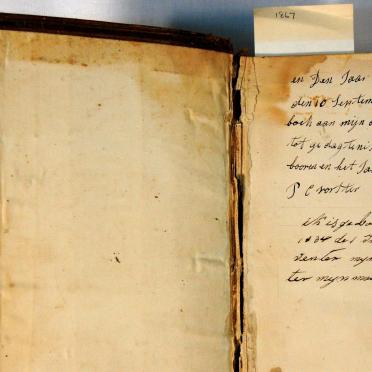 1867
en Den Jaar
den 10 Septem
boek aan mijn
tot gedagtenis
booren en het Ja
P C vorster
ik is geboo
1834 des
venter myn
ter myn moe